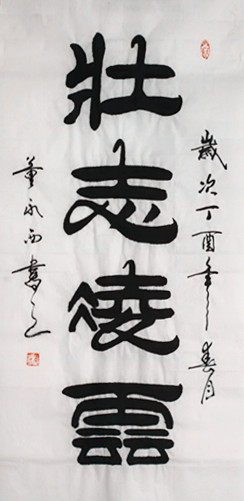 歲次丁酉年春月
壯志凌雲
董永西書之